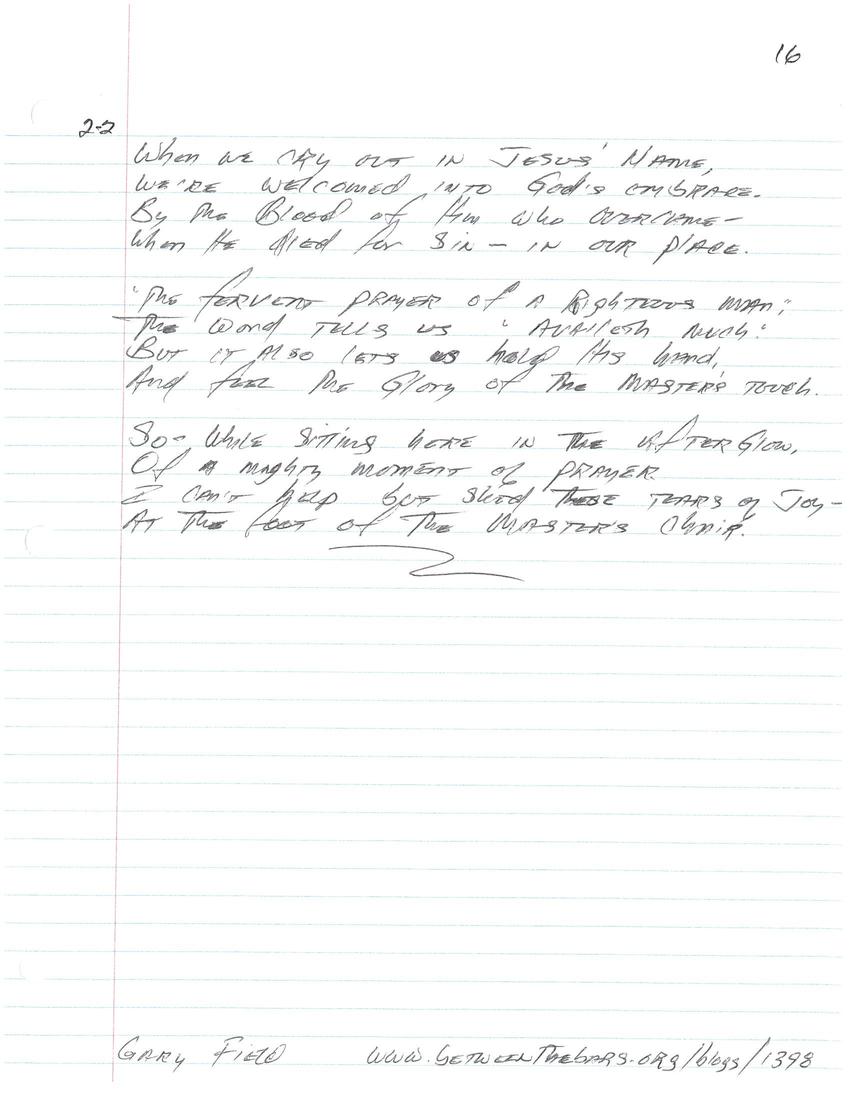 16
2-2
When we cry out in Jesus' Name,
We're welcomed into God's embrace.
By the Blood of Him who overcame—
When He died for Sin — in our place.
"The fervent prayer of a Righteous man,"
The Word tells us "Availeth much."
But it also lets us hold His hand,
And feel the Glory of the Master's touch.
So- While sitting here in the afterglow,
Of a mighty moment of prayer.
I can't help but shed these tears of Joy—
At the foot of the Master's Chair.
Gary Field www.betweenthebars.org/blogs/1398